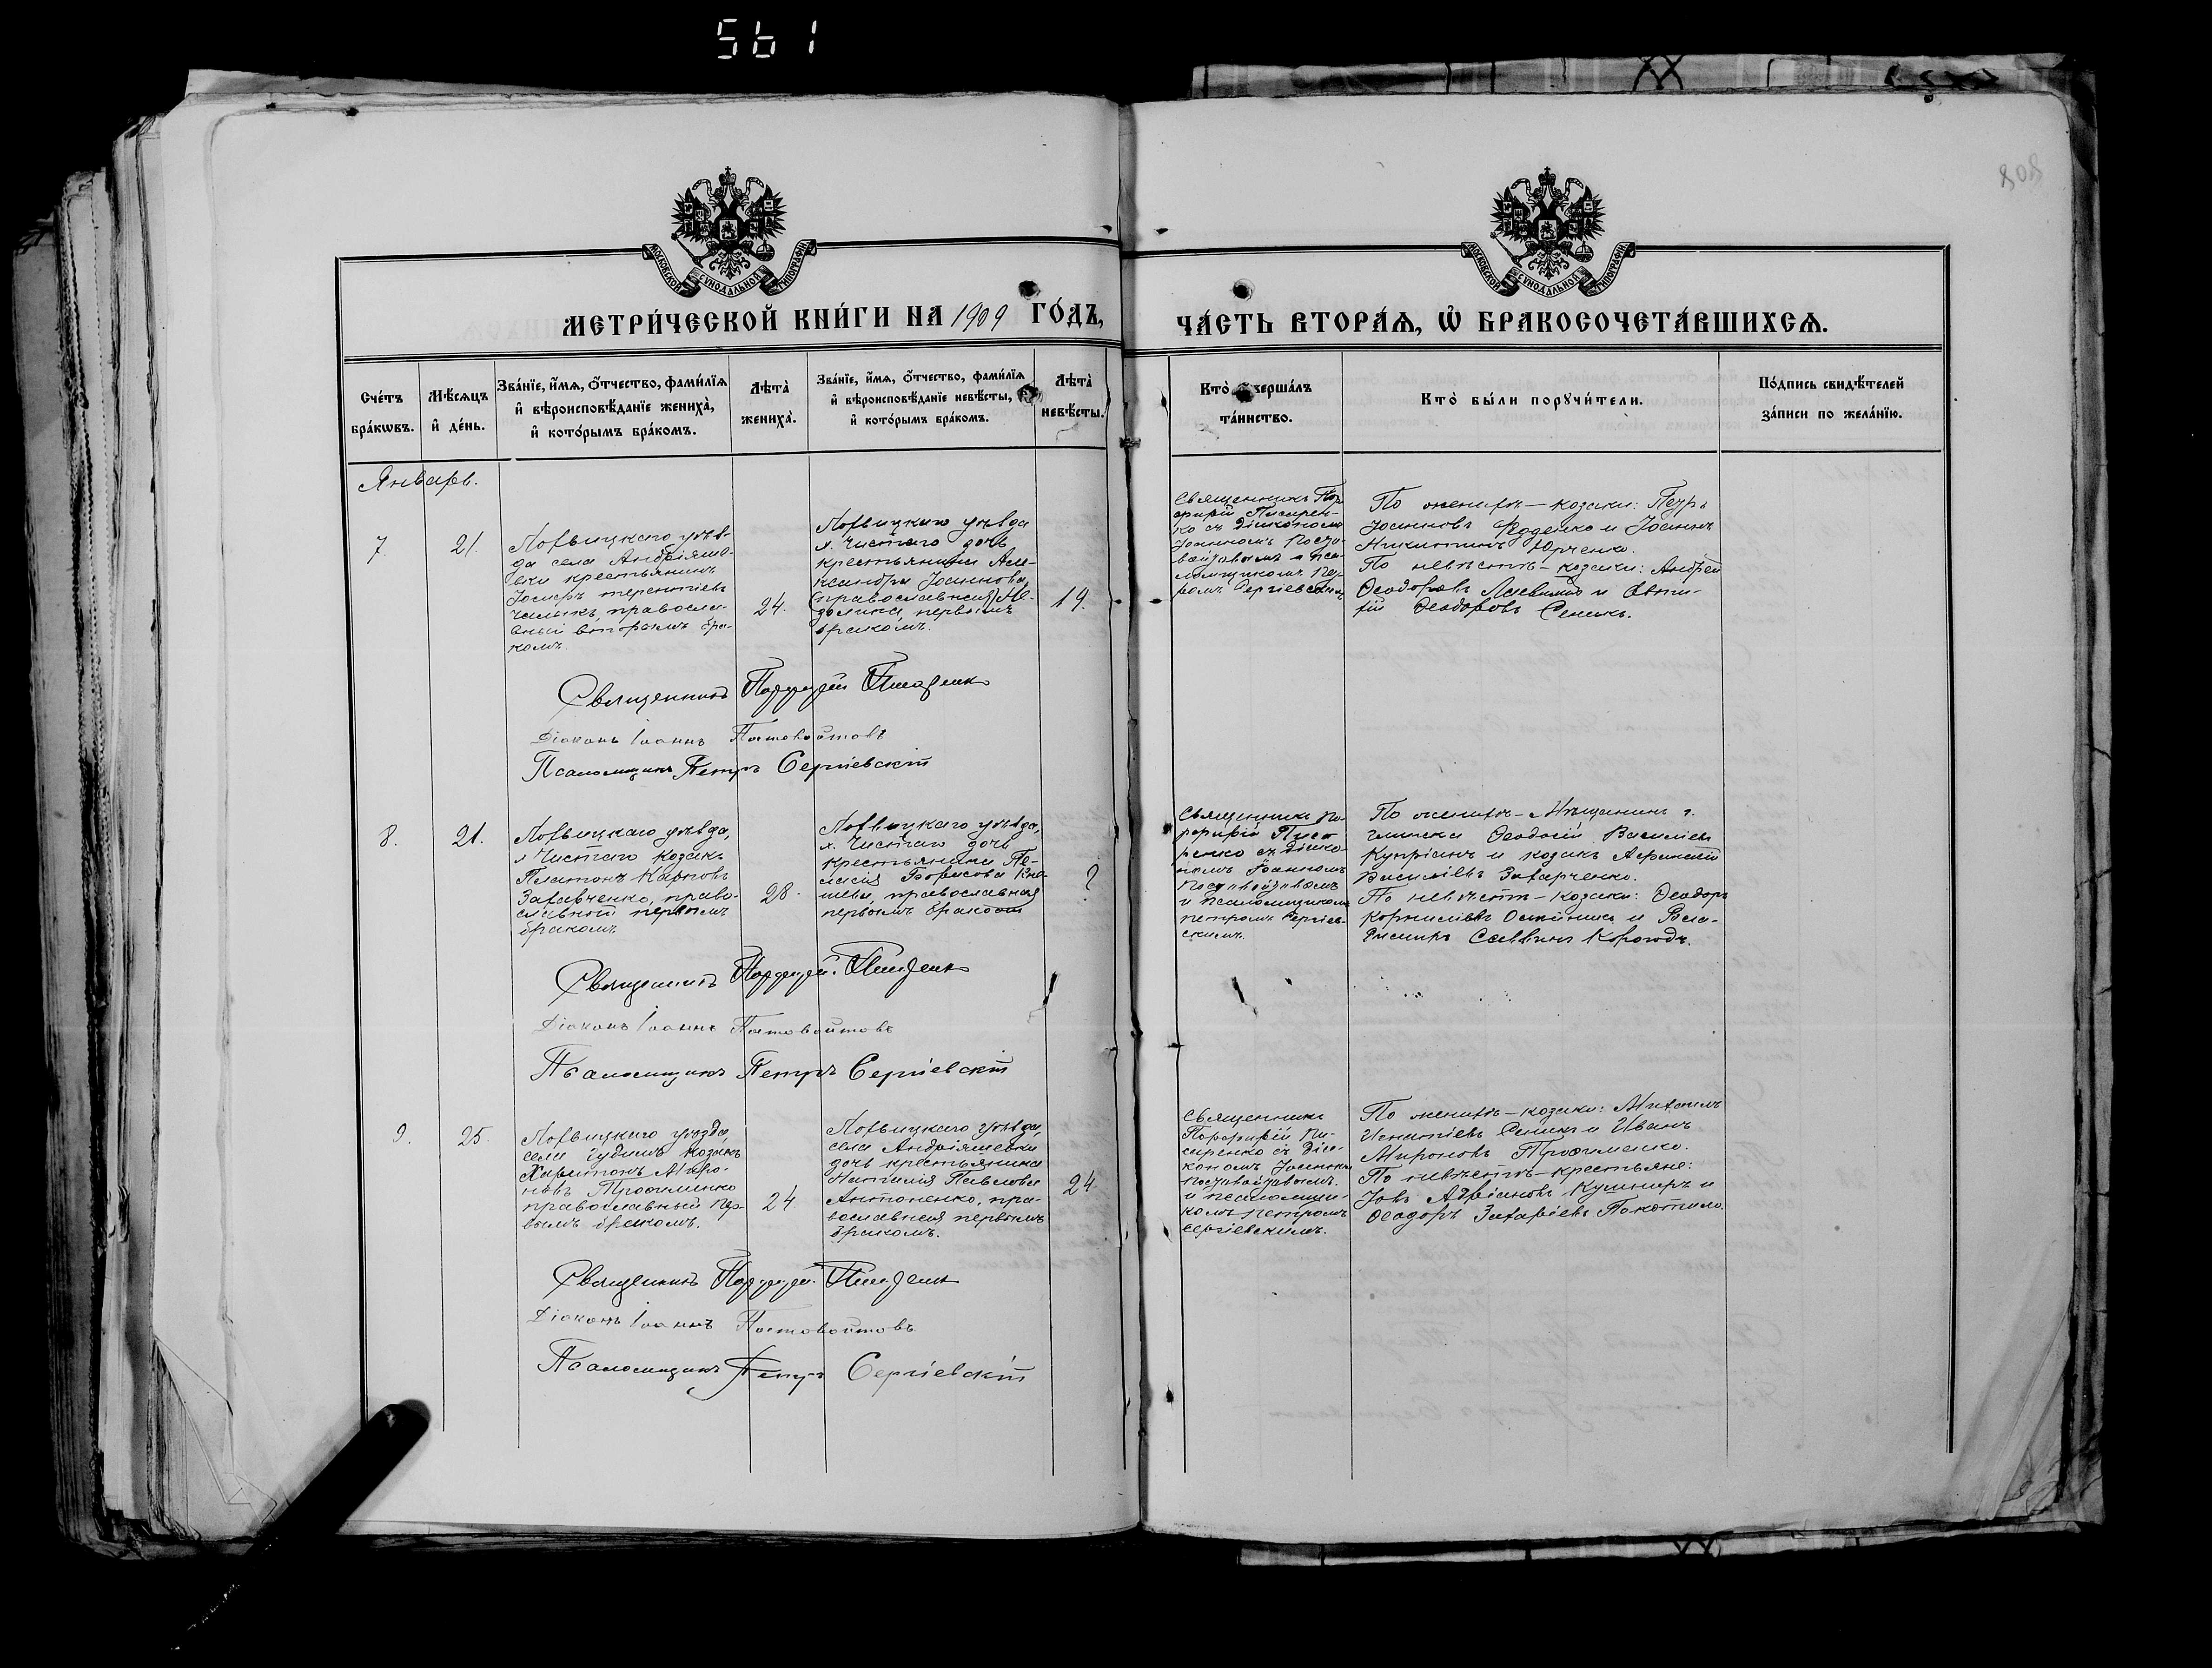 561
808
МОСКОВСКОЙ СѴНОДАЛЬНОЙ ТИПОГРАФІИ
МОСКОВСКОЙ СѴНОДАЛЬНОЙ ТИПОГРАФІИ
МЕТРИ́ЧЕСКОЙ КНИ́ГИ НА 1909 ГО́ДЪ,
ЧА́СТЬ ВТОРА́Ѧ, Ѽ БРАКОСОЧЕТА́ВШИХСѦ.
Сче́тъ
бра́кѡвъ.
Мѣ́сѧцъ
и҆ де́нь.
Зва́нїе, и҆́мѧ, ѻ҆́тчество, фами́лїѧ
и҆ вѣроисповѣ́данїе жениха̀,
и҆ кото́рымъ бра́комъ.
Лѣта̀
жениха̀.
Зва́нїе, и҆́мѧ, ѻ҆́тчество, фами́лїѧ
и҆ вѣроисповѣ́данїе невѣ́сты,
и҆ кото́рымъ бра́комъ.
Лѣта̀
невѣ́сты.
Кто̀
та́инство.
Кто̀ бы́ли порꙋчи́тели.
По́дпись свидѣ́телей
за́писи по жела́нїю.
Январь.
7.
21.
Лохвицкаго уѣз-
да села Андріяшо-
вки крестьянинъ
Іосифъ Терентіевъ
православ-
ный вторымъ бра-
комъ.
24.
Лохвицкаго уѣзда
х. Чистаго дочь
крестьянина Але-
ксандра Іоаннова
православная
первымъ
бракомъ.
19.
Священникъ Пор-
фирій Писарен-
ко съ Діакономъ
Іоанномъ Посто-
войтовымъ и пса-
ломщикомъ Пет-
ромъ Сергіевскимъ
По женихѣ – козаки: Петръ
Іоанновъ Феденко и Іоаннъ
Никитинъ Юрченко.
По невѣстѣ – козаки: Андрей
Ѳеодоровъ и
Ѳеодоровъ Сеникъ.
Священникъ Порфирій Писаренко
Діаконъ Іоаннъ Постовойтовъ
Псаломщикъ Петръ Сергіевскій
8.
21.
Лохвицкаго уѣзда,
х Чистаго козакъ
Платонъ Карповъ
Захарченко, право-
славный первымъ
бракомъ
28.
Лохвицкаго уѣзда,
х. Чистаго дочь
крестьянина Пе-
лагія Борисова
православная
первымъ бракомъ
?
Священникъ По-
рфирій Писа
ренко съ Діако-
номъ Іоанномъ
Постовойтовымъ
и псаломщикомъ
Петромъ Сергіев-
скимъ.
По женихѣ – Мѣщанинъ г.
Глинска Ѳеодосій Василіевъ
Купріянъ и козакъ Афанасій
Василіевъ Захарченко.
По невѣстѣ – козаки: Ѳеодоръ
Корниліевъ и Вла-
димиръ Саввинъ Корогодъ.
Священникъ Порфирій Писаренко
Діаконъ Іоаннъ Постовойтовъ
Псаломщикъ Петръ Сергіевскій
9.
25.
Лохвицкаго уѣзда,
села Гудимъ козакъ
Харитонъ Миро-
новъ Трофименко
православный пер-
вымъ бракомъ.
24
Лохвицкаго уѣзда,
села Андріяшевки
дочь крестьянина
Наталія Павлова
Антоненко, пра-
вославная первымъ
бракомъ.
24
Священникъ
Порфирій Пи-
саренко съ Діа-
кономъ Іоанномъ
Постовойтовымъ
и псаломщи-
комъ Петромъ
Сергіевскимъ.
По женихѣ – козаки: Михаилъ
Игнатіевъ Сеникъ и Иванъ
Мироновъ Трофименко.
По невѣстѣ – крестьяне:
Іовъ Адріановъ Кушниръ и
Ѳеодоръ Захаріевъ Покотило.
Священникъ Порфирій Писаренко
Діаконъ Іоаннъ Постовойтовъ
Псаломщикъ Петръ Сергіевскій